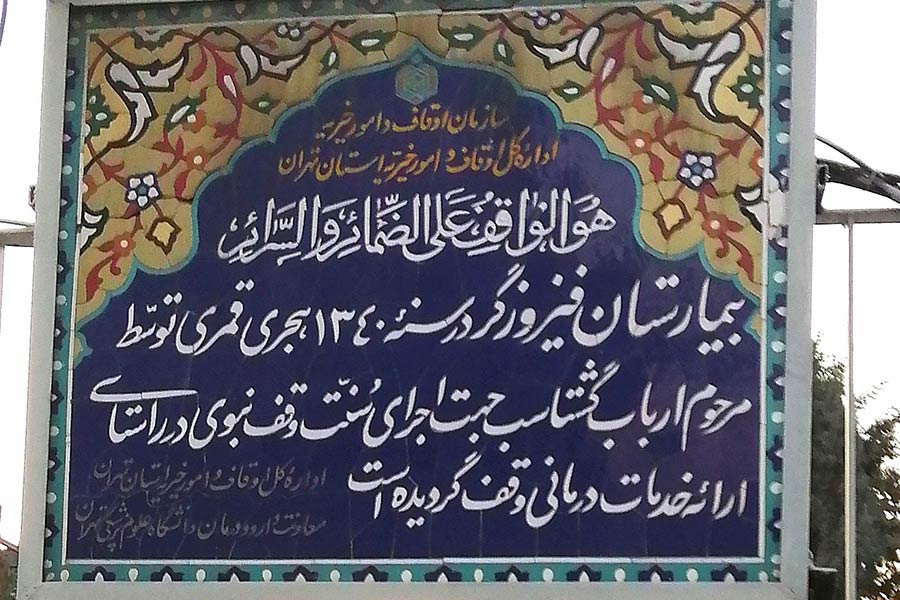 سازمان اوقاف و امور خیریه
اداره کل اوقاف و امور خیریه استان تهران
هُوَ الْوٰاقِفُ عَلَی الضَّمٰائِرِ وَ السَّرٰائِرِ
بیمارستان فیروزگر در سنهٔ ۱۳۴۰ هجری قمری توسّط
مرحوم ارباب گشتاسب جهت اجرای سُنّت وقف نبوی در راستای
ارائه خدمات درمانی وقف گردیده است
ادارهٔ کل اوقاف و امور خیریه استان تهران
معاونت غذا و درمان دانشگاه علوم پزشکی تهران